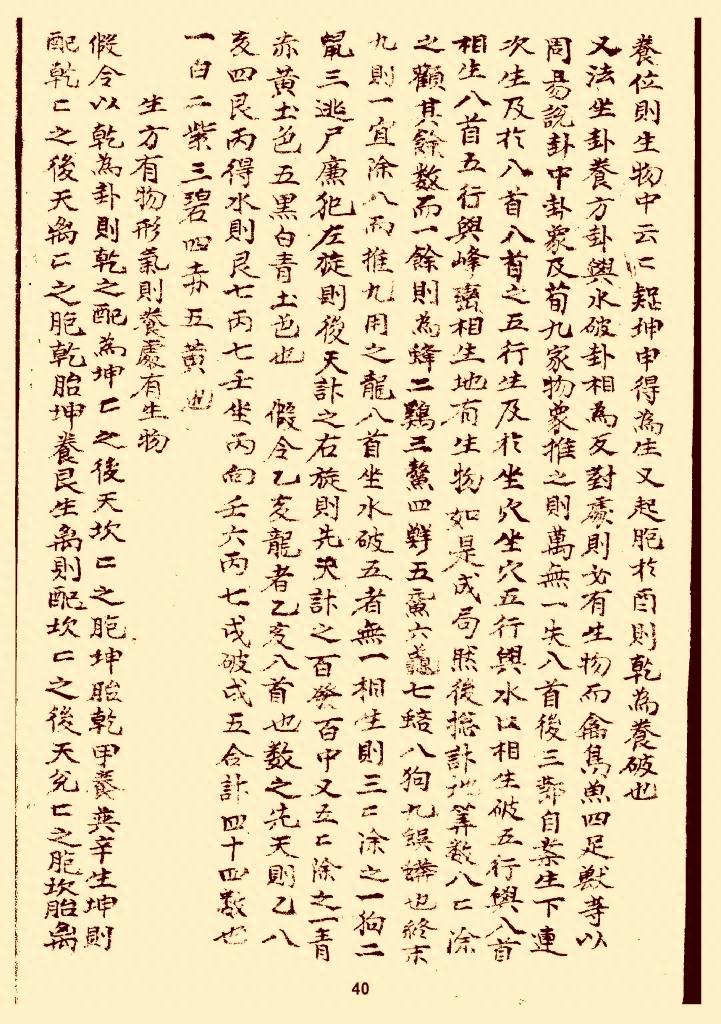 養位則生物中云〻疑坤申得為生又起胞於酉則乾為養破也
又法坐卦養方卦與水破卦相為反對處則必有生物而禽鳥魚四足獸等以
周易說卦中卦象及荀九家物象推之則萬無一失八首後三節自來生下連
次生及於八首八首之五行生及於坐穴坐穴五行與水以相生破五行與八首
相生八首五行與峰巒相生地有生物如是成局然後摠計地筭數八〻除
之觀其餘數而一餘則為蜂二鷄三鰲四蟬五六龜七蛤八狗九也終末
九則一宜除八而推九用之龍八首坐水破五者無一相生則三〻除之一狗二
鼠三逃尸廉犯左旋則後天計之右旋則先天計之百發百中又五〻除之一青
赤黃土色五黑白青土色也 假令乙亥龍者乙亥八首也數之先天則乙八
亥四艮丙得水則艮七丙七壬坐丙向壬六丙七戌破戌五合計四十四數也
一白二紫三碧四赤五黃也
生方有物形氣則養處有生物
假令以乾為卦則乾之配為坤〻之後天坎〻之胞坤胎乾甲養巽辛生坤則
配乾〻之後天离〻之胞乾胎坤養艮生离則配坎〻之後天兌〻之胞坎胎离
40